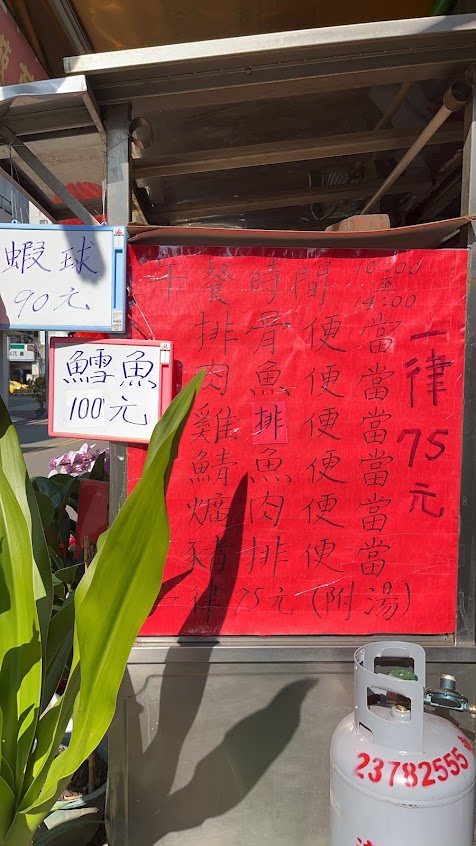 蝦球
90元
鱈魚
100元
午餐時間 10:00
至
14:00
排骨便當
肉魚便當
雞排便當
鯖魚便當
爌肉便當
豬排便當
一律75元(附湯)
一律75元
23782555